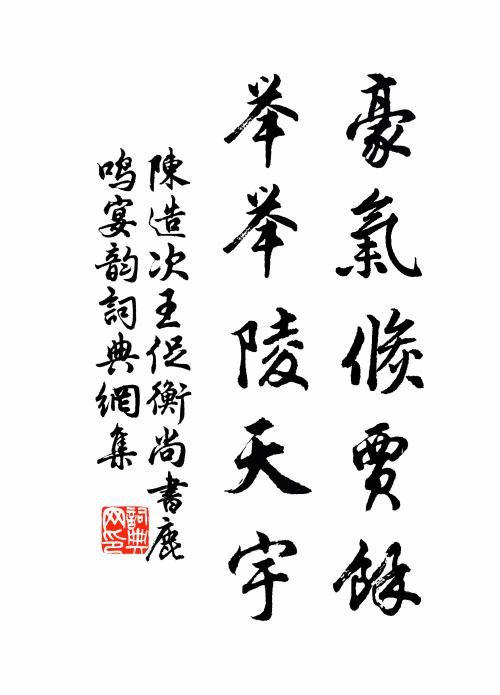 豪氣倏賈餘
举举陵天宇
陳造次王促衡尚書鹿
鸣宴韵詞典網集
詞典网印